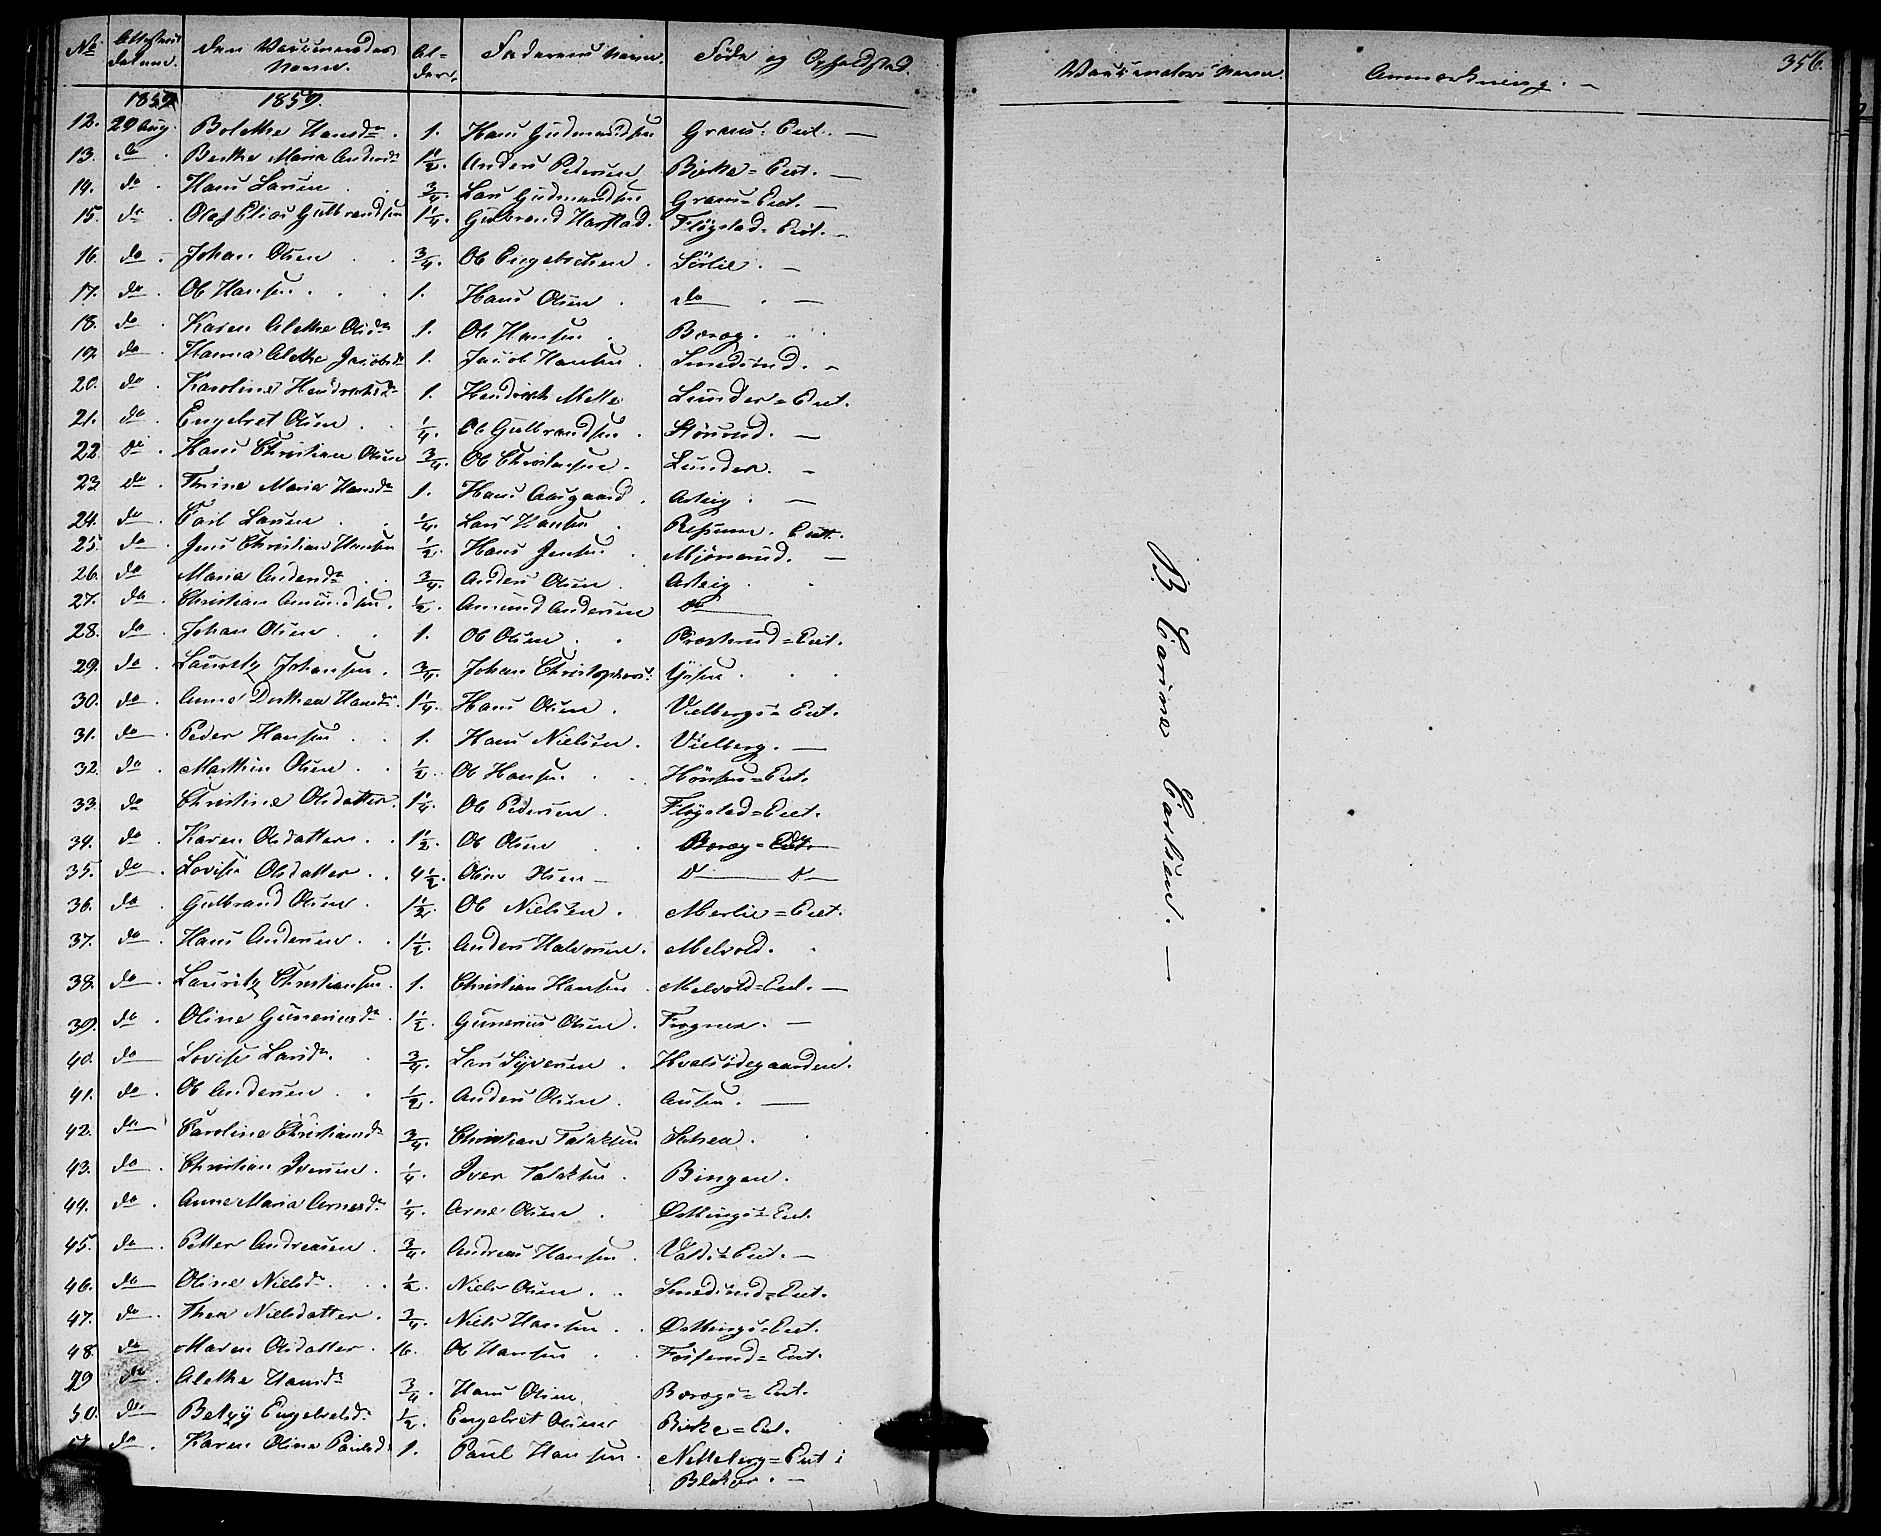 No. Attestens datum. Den Vaccineredes Navn. Al- der. Faderens Navn. Føde og Opholdsted. Vaccinators Navn. Anmærkning. 356.
1859 1859.
12. 29 Aug. Bolethe Hansdr. 1. Hans Gudmundsen Grans: Eiet.
13. do Berthe Maria Andersdr 1 1/2. Anders Pedersen Birke=Eiet.
14. do Hans Larsen 3/4. Lars Gudmundsen Grans=Eiet.
15. do Olaf Elias Gulbrandsen 1 1/4. Gulbrand Harstad. Fløgstad=Eiet.
16. do Johan Olsen 3/4. Ole Engebretsen. Sörlie.
17. do Ole Hansen. 1. Hans Olsen. do
18. do Karen Alethe Olsdr 1. Ole Hansen. Borog.
19. do Hanna Alethe Jacobsdr 1. Jacob Hansen. Smedsrud.
20. do Karoline Hendrichsdr 1. Hendrich Melle Lunder=Eiet.
21. do Engebret Olsen 1/4. Ole Gulbrandsen. Stönsrud.
22. do Hans Christian Olsen 3/4. Ole Christiansen. Lunder.
23. do Thrine Maria Hansdr 1. Hans Aasgaard. Asteig.
24. do Carl Larsen 1/4. Lars Hansen. Eiet.
25. do Jens Christian Hansen 1/2. Hans Jensen. Mjönerud.
26. do Maria Andersdr 3/4. Anders Olsen. Asteig.
27. do Christian Amundsen. 1/2. Amund Andersen do
28. do Johan Olsen. 1. Ole Olsen. Præsterud=Eiet.
29. do Lauritz Johansen. 3/4. Johan Christophers.
30. do Anne Dorthea Hansdr. 1 1/4. Hans Olsen. Vielbergs=Eiet.
31. do Peder Hansen 1. Hans Nielsen. Vielberg.
32. do Marthin Olsen. 1/2. Ole Hansen. Hönsen=Eiet.
33. do Christine Olsdatter. 1 1/4. Ole Pedersen. Fløgstad=Eiet.
34. do Karen Olsdatter. 1 1/2. Ole Olsen Borog=Eiet.
35. do Lovise Olsdatter. 4 1/2. Olsen do do
36. do Gulbrand Olsen. 1 1/2. Ole Nielsen. Merlie=Eiet.
37. do Hans Andersen. 1 1/2. Anders Halvorsen. Melvold.
38. do Lauritz Christiansen. 1. Christian Hansen. Melvold=Eiet.
39. do Oline Guneriusdr. 1 1/2. Gunerius Olsen. Frogner.
40. do Lovise Larsdr. 3/4. Lars Syversen. Hvalsödegaarden.
41. do Ole Andersen. 1/2. Anders Olsen. Ausen.
42. do Caroline Christiansdr 3/4. Christian Falaksen
43. do Christian Iversen. 1/4. Iver Falaksen. Bingen.
44. do Anne Maria Arnesdr 1/4. Arne Olsen. Østtings=Eiet.
45. do Petter Andreasen. 3/4. Andreas Hansen. Valds=Eiet.
46. do Oline Nielsdr. 1/2. Niels Olsen. Smedsrud=Eiet.
47. do Thea Nielsdatter. 3/4. Niels Hansen. Østtings=Eiet.
48. do Maren Olsdatter. 16. Ole Hansen Fosserud=Eiet.
49 do Alethe Hansdr 3/4. Hans Olsen Borogs=Eiet.
50. do Betzy Engebretsdr. 1/2. Engebret Olsen Birke=Eiet.
51. do Karen Oline Paulsdr 1. Paul Hansen. Netteberg=Eiet i
Blaker.
B. Carine Carlsen.